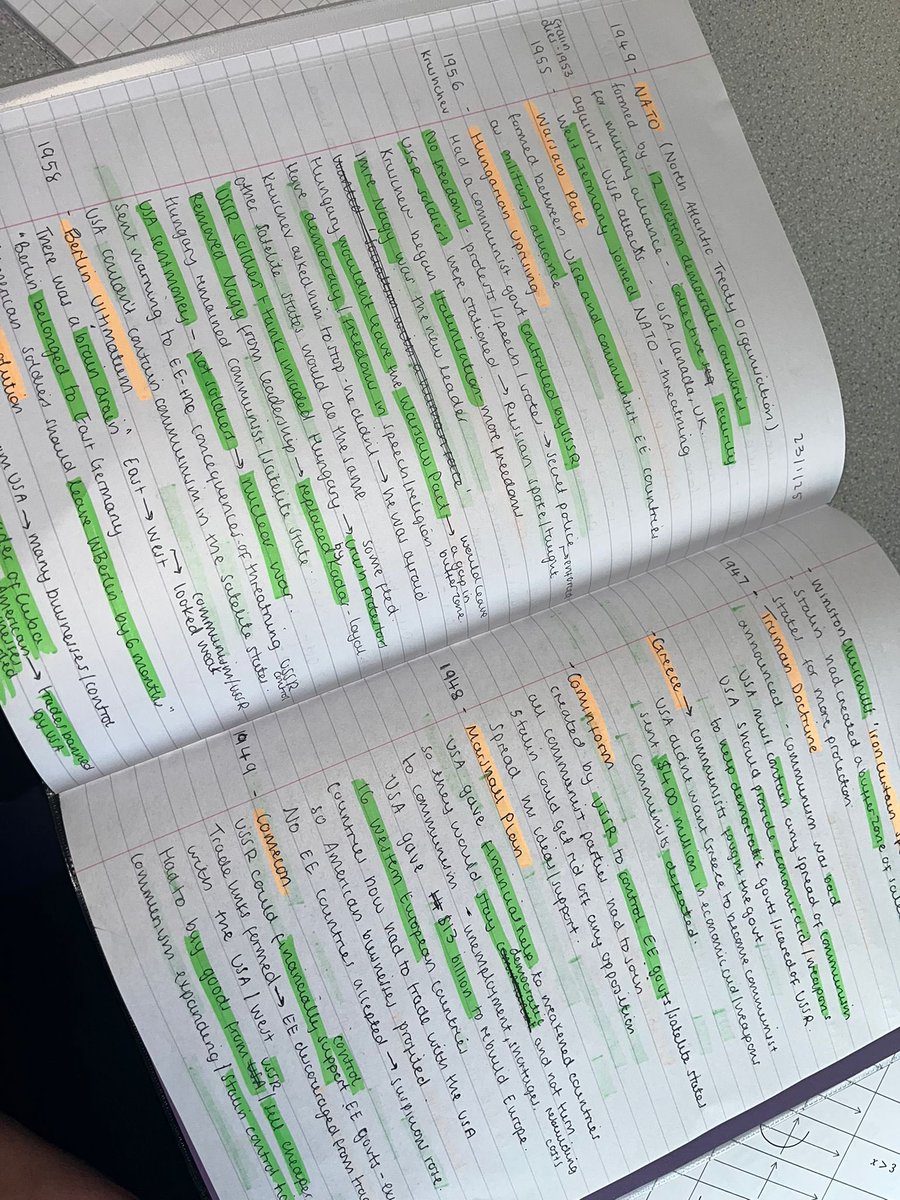 23/1/25
1949 - NATO (North Atlantic Treaty Organisation)
formed by 12 western democratic countries
for military alliance - collective security
USA, Canada, UK...
against USSR attacks.
West Germany joined NATO - threatning
Stalin
dies: 1953
1955 - Warsaw Pact
formed between USSR and communist EE countries
as military alliance
1956 - Hungarian Uprising
Kruchev
Had a communist govt controlled by USSR
No freedom protests/speech/votes → secret police enforced
USSR soldiers were stationed → Russian spoke/taught
Kruschev began stalinisation more freedoms
Imre Nagy was the new leader
would leave
a gap in
buffer zone
Hungary wouldn't leave the Warsaw Pact →
leave democracy, freedom in speech/religion
Kruschev asked him to stop - he didn't → he was afraid
other satelite states would do the same
USSR soldiers + tanks invaded Hungary → some protested.
Removed Nagy from leadership → replaced by Kadar loyal.
Hungary remained communist/satelite state
USA sent money - not soldiers → nuclear war.
sent warning to EE - the conquequences of threatning USSR control
USA couldn't contain communism in the satelite states
1958 - Berlin Ultimatum
There was a 'brain drain' East → west → communism/USSR looked weak
"Berlin belonged to East Germany
American soldiers should leave W Berlin by 6 months"
USA → many businesses/control
of Cuba
→ trade banned by USA
- Winston Churchill 'iron curtain
Stalin had created a buffer zone of
states for more protection.
1947 - Truman Doctrine
announced communism was bad
USA must contain any spread of communism
USA should provide economic aid/weapons
to help democratic govts/scared of USSR.
- Greece → communists fought the govt
USA didn't want Greece to become communist
sent $400 million in economic aid/weapons
communists defeated.
- Cominform
created by USSR to control EE govts/satelite states
all communist parties had to join
Stalin could get rid off any opposition
spread his ideas/support.
1948 - Marshall Plan
USA gave financial help to weakened countries
so they would stay democratic and not turn
to communism - unemployment, shortages, rebuilding costs
USA gave $13 billion to rebuild Europe
16 western European countries
countries now had to trade with the USA
so American businesses profited
No EE countries accepted → suspicions rose.
1949 - Comecon
USSR could financially support EE govts -
control
Trade links formed → EE discouraged from
with the USA/West
Had to buy good from USSR sell cheaper
communism expanding/Stalin control
x>3